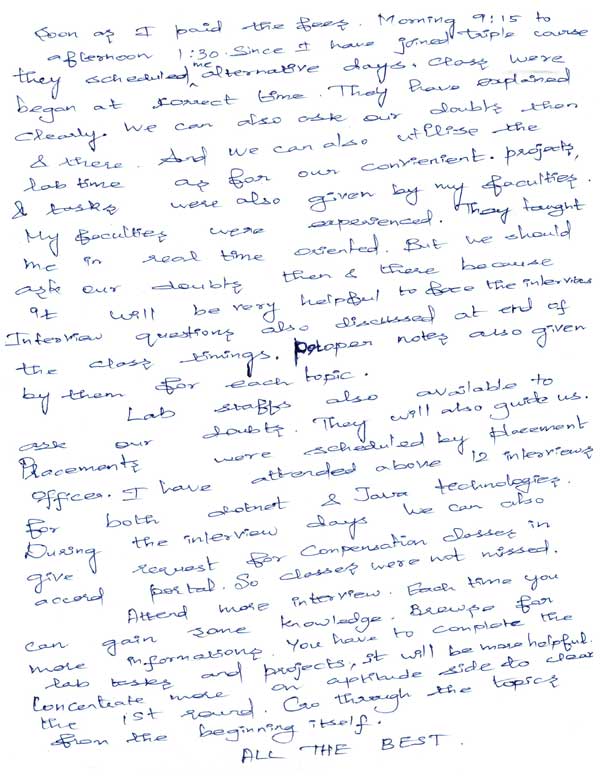 Soon as I paid the fees. Morning 9:15 to
afternoon 1:30. Since I have joined triple course
they scheduled me alternative days. Class were
began at correct time. They have explained
clearly. We can also ask our doubts then
& there. And we can also utilise the
lab time as for our convienient. projects,
& tasks were also given by my faculties.
My faculties were experienced. They taught
me in real time oriented. But we should
ask our doubts then & there because
it will be very helpful to face the interviews
Interview questions also discussed at end of
the class timings. proper notes also given
by them for each topic.
Lab staffs also available to
ask our doubts. They will also guide us.
Placements were scheduled by Placement
Officer. I have attended above 12 interviews
for both dotnet & Java technologies.
During the interview days we can also
give request for compensation classes in
accord portal. So classes were not missed.
Attend more interview. Each time you
can gain some knowledge. Browse for
more informations. You have to complete the
lab tasks and projects, it will be more helpful.
Concentrate more on aptitude side to clear
the 1st round. Go through the topics
from the beginning itself.
ALL THE BEST.